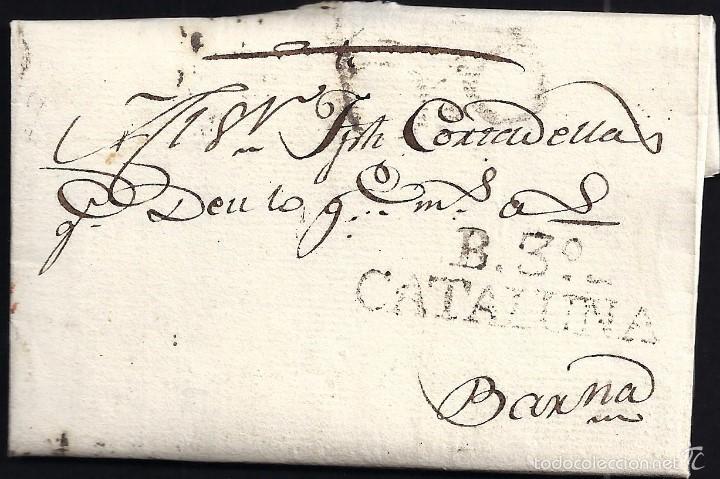 Al Sr. Jph Cortadellas
q.e Deu lo g.e m.s a.s
B. 3º
CATALUNA
Barna
todocoleccion.net TC